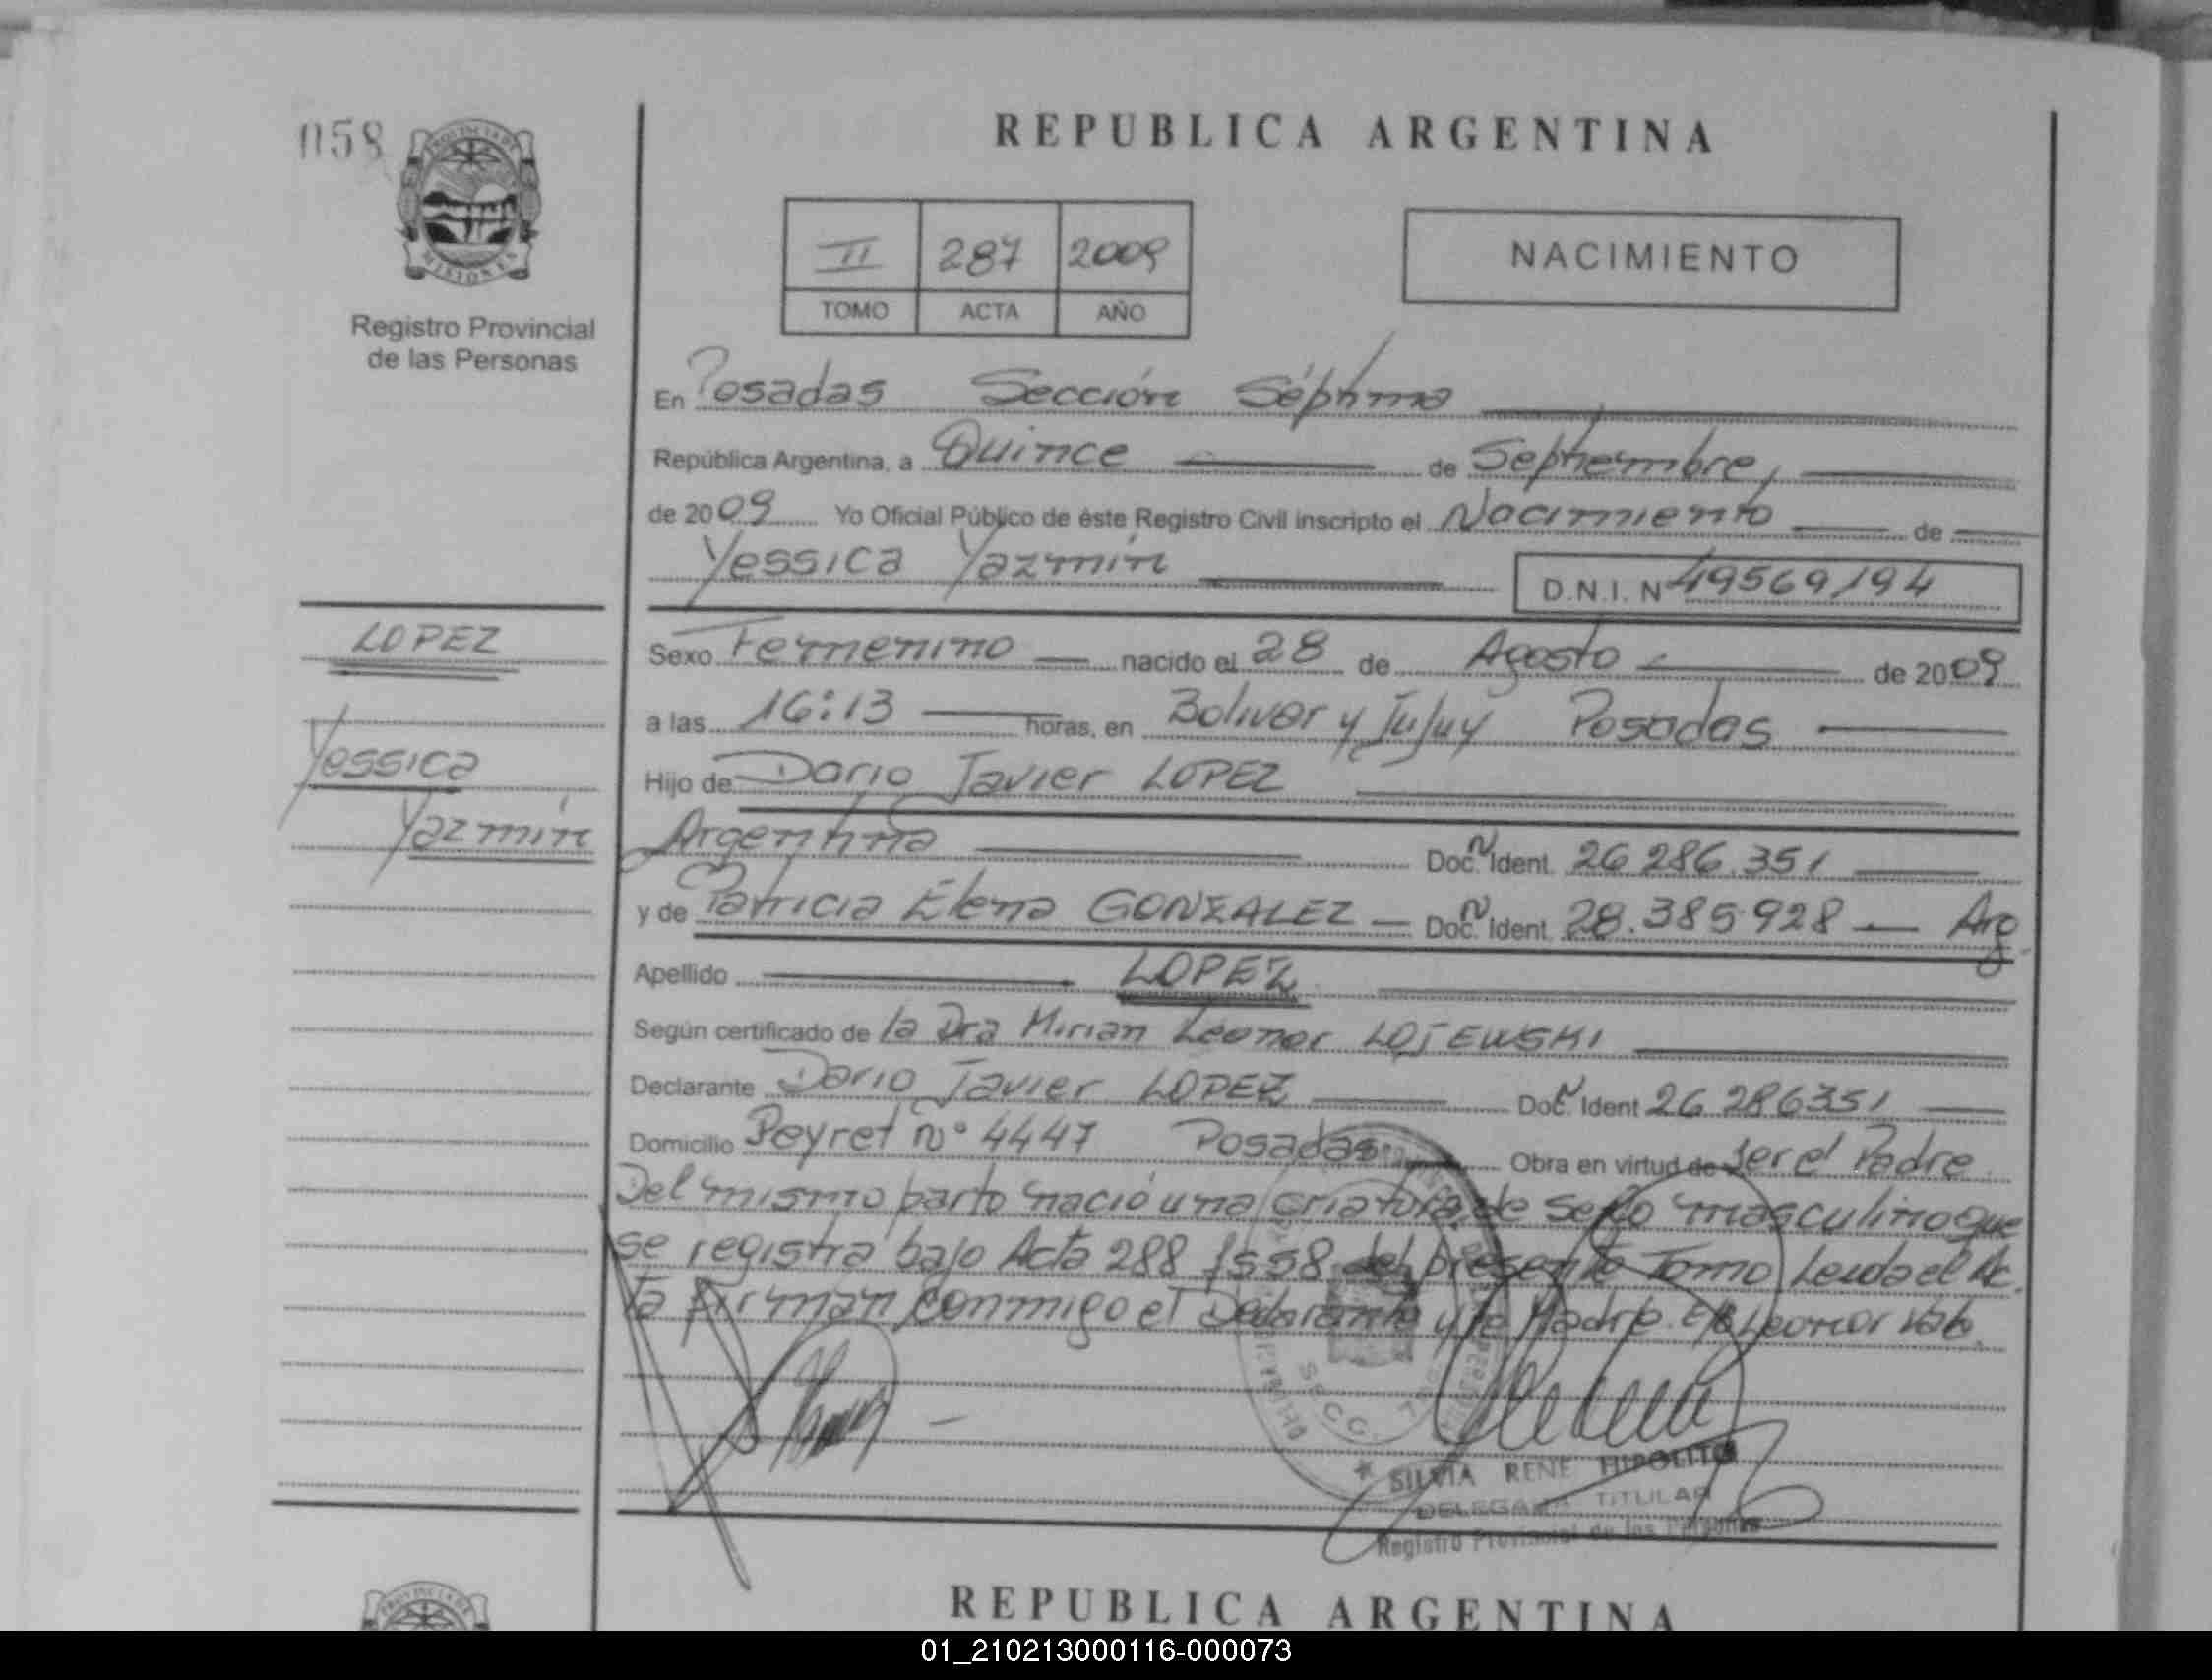 058
PROVINCIA DE
MISIONES
Registro Provincial
de las Personas
REPUBLICA ARGENTINA
II 287 2009
TOMO ACTA AÑO
NACIMIENTO
En Posadas Sección Séptima
República Argentina, a Quince de Septiembre,
de 2009 Yo Oficial Público de éste Registro Civil inscripto el Nacimiento de
Yessica Yazmín
D.N.I. N 49569194
LOPEZ
Yessica
Yazmín
Sexo Femenino nacido el 28 de Agosto de 2009
a las 16:13 horas, en Bolivar y Jujuy Posadas
Hijo de Dario Javier LOPEZ
Argentina Doc. N Ident. 26 286.351
y de Patricia Elena GONZALEZ Doc. N Ident. 28.385.928 Arg.
Apellido LOPEZ
Según certificado de la Dra Mirian Leonor LOJEWSKI
Declarante Dario Javier LOPEZ Doc. N Ident 26 286351
Domicilio Peyret nº 4447 Posadas Obra en virtud de ser el Padre
Del mismo parto nació una criatura de sexo masculino que
se registra bajo Acta 288 fs 58 del presente Tomo Leida el Ac
ta Firman conmigo el Declarante y la Madre Leonor
SECC.
SILVIA RENE HIPOLITO
DELEGADA TITULAR
Registro Provincial de las Personas
REPUBLICA ARGENTINA
PROVINCIA DE
01_210213000116-000073